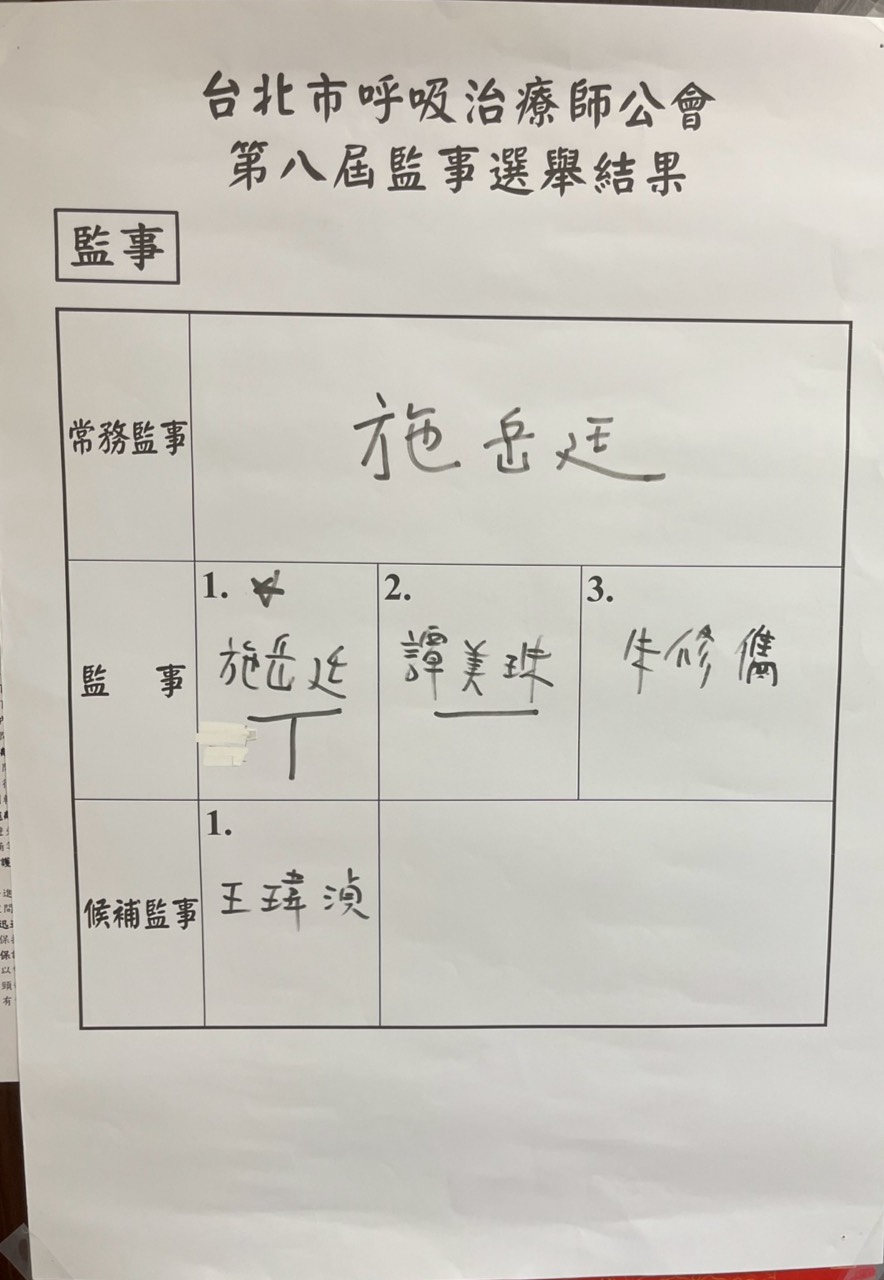 台北市呼吸治療師公會
第八屆監事選舉結果
監事
常務監事
施岳廷
監 事
1.
施岳廷
2.
譚美珠
3.
朱修儁
候補監事
1.
王瑋湞